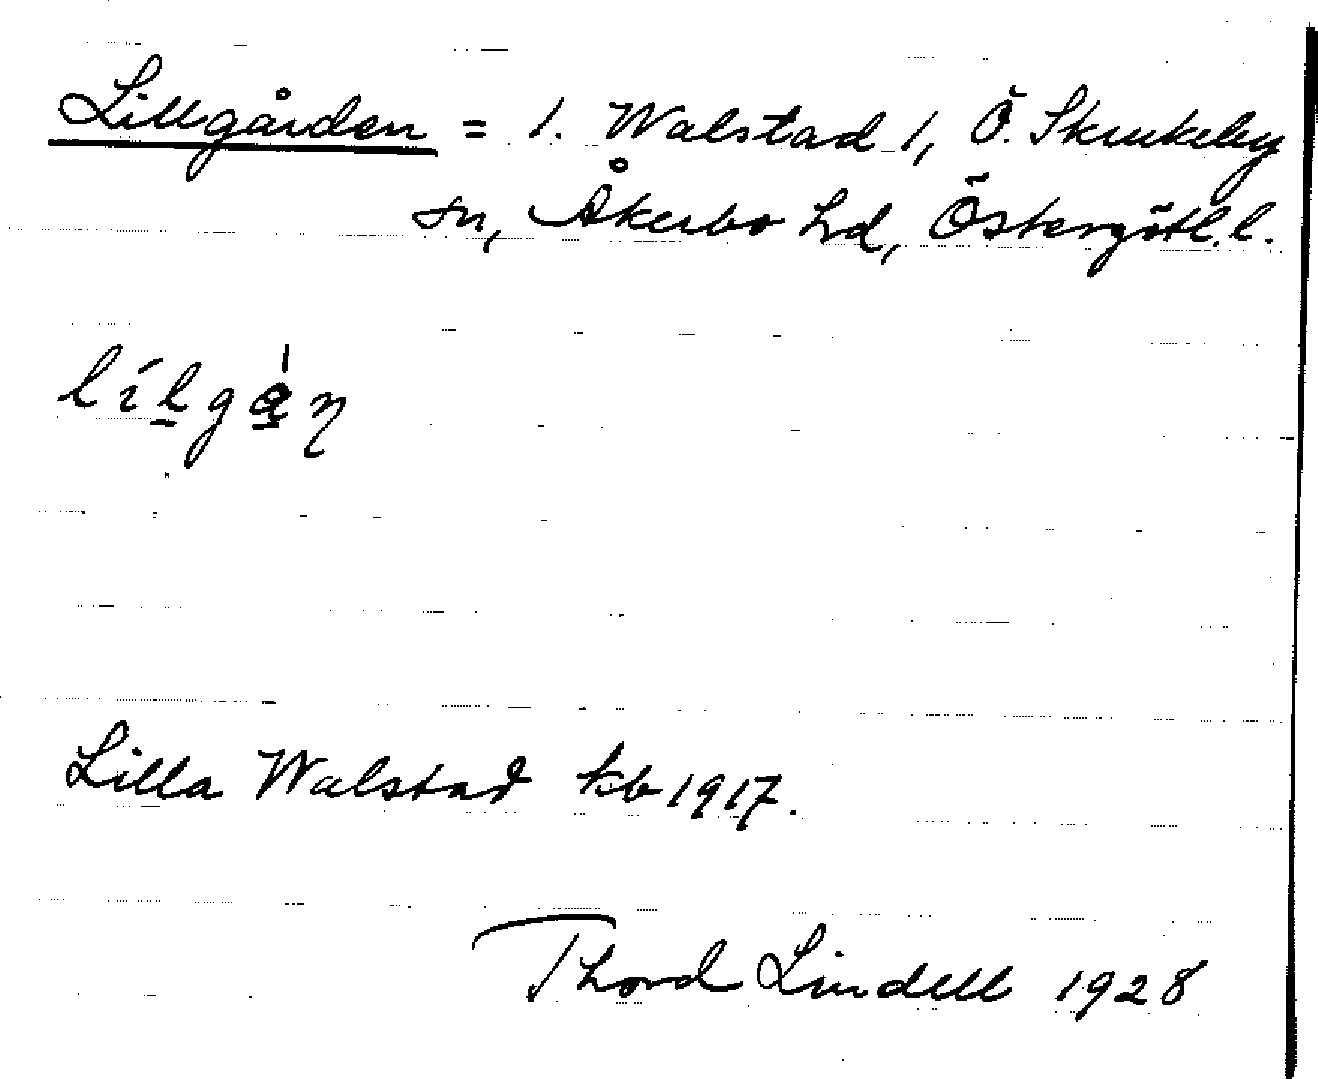 Lillgården = 1. Walstad 1, Ö. Skrukeby
sn, Åkerbo hd, Östergötl. l.
lílgån
Lilla Walstad kb 1917.
Thord Lindell 1928